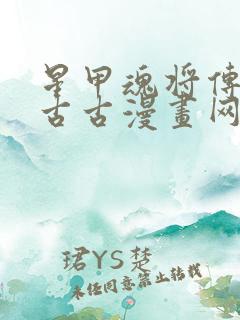 星甲魂将传
古古漫画网
珺YS楚
未经同意禁止转载